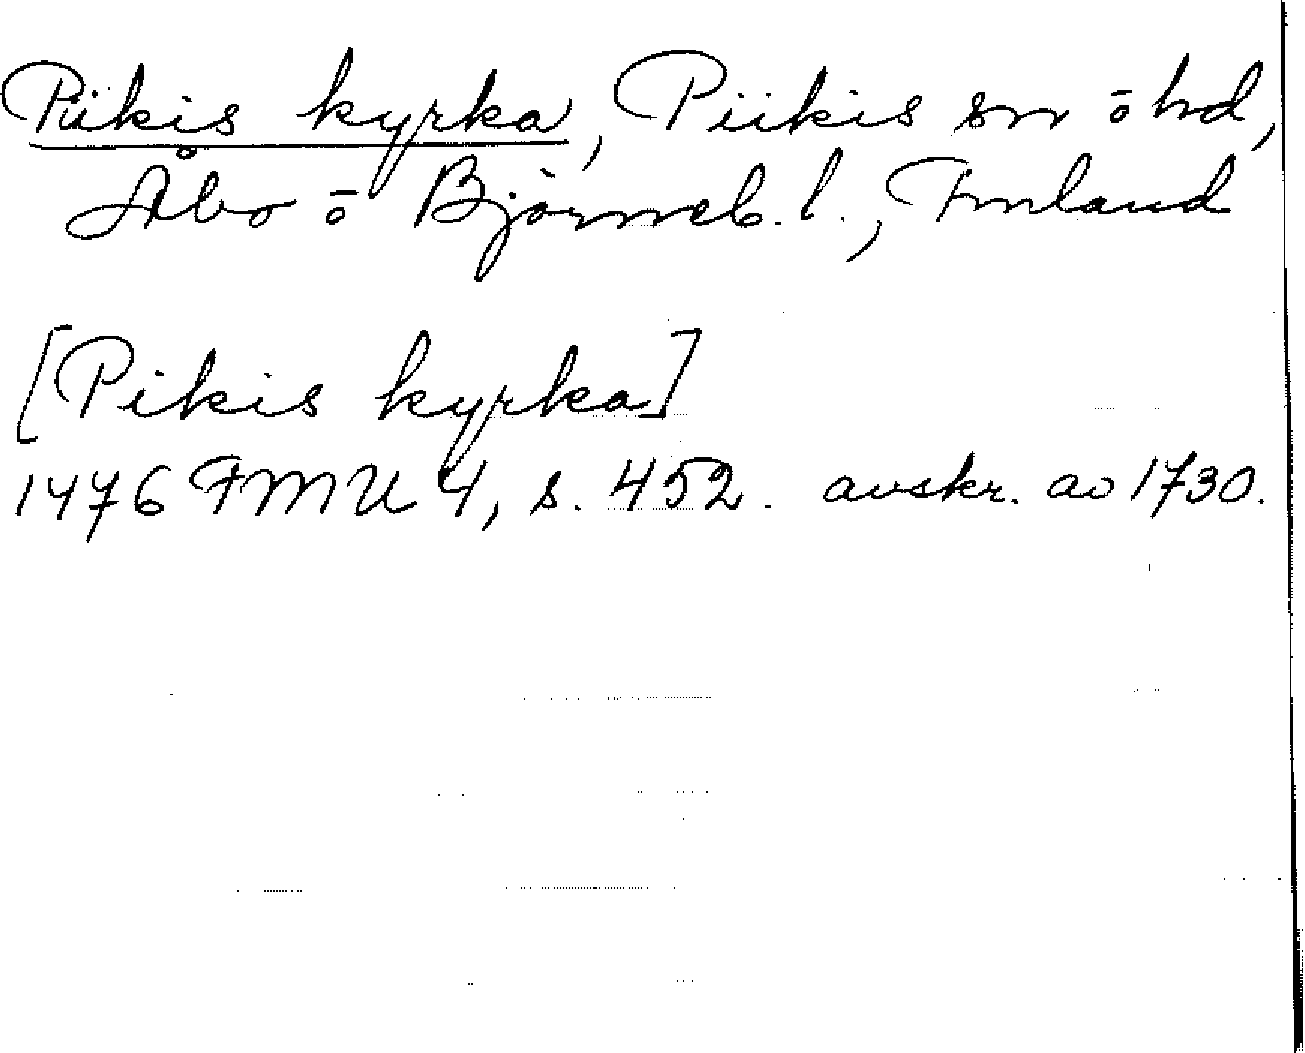 Piikis kyrka, Piikis sn ō hd,
Åbo ō Björneb. l., Finland
[Pikis kyrka]
1476 FMU 4, s. 452. avskr. av 1730.